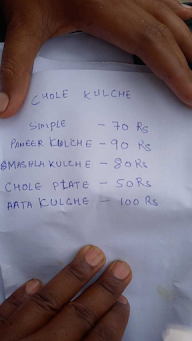 CHOLE KULCHE
SIMPLE - 70 Rs
PANEER KULCHE - 90 Rs
MASHLA KULCHE - 80 Rs
CHOLE PLATE - 50 Rs
AATA KULCHE - 100 Rs